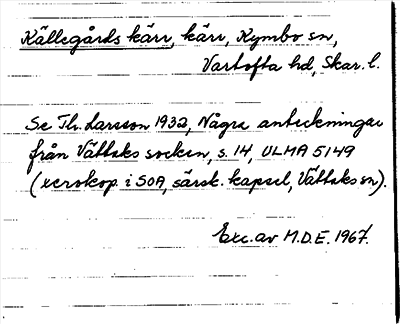 Källegårds kärr, kärr, Kymbo sn,
Vartofta hd, Skar. l.
Se Th. Larsson 1932, Några anteckningar
från Vättaks socken, s. 14, ULMA 5149
(xerokop. i SOA, särsk. kapsel, Vättaks sn).
Exc. av M.D.E. 1967.